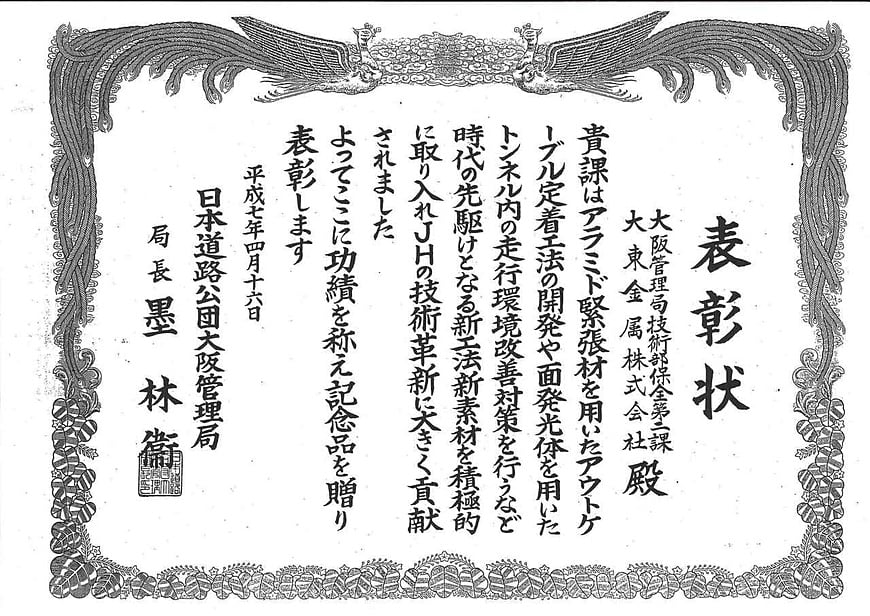 表彰状
大阪管理局技術部保全第二課
大東金属株式会社 殿
貴課はアラミド緊張材を用いたアウトケ
ーブル定着工法の開発や面発光体を用いた
トンネル内の走行環境改善対策を行うなど
時代の先駆けとなる新工法新素材を積極的
に取り入れJHの技術革新に大きく貢献
されました
よってここに功績を称え記念品を贈り
表彰します
平成七年四月十六日
日本道路公団大阪管理局
局長 墨 林 衞